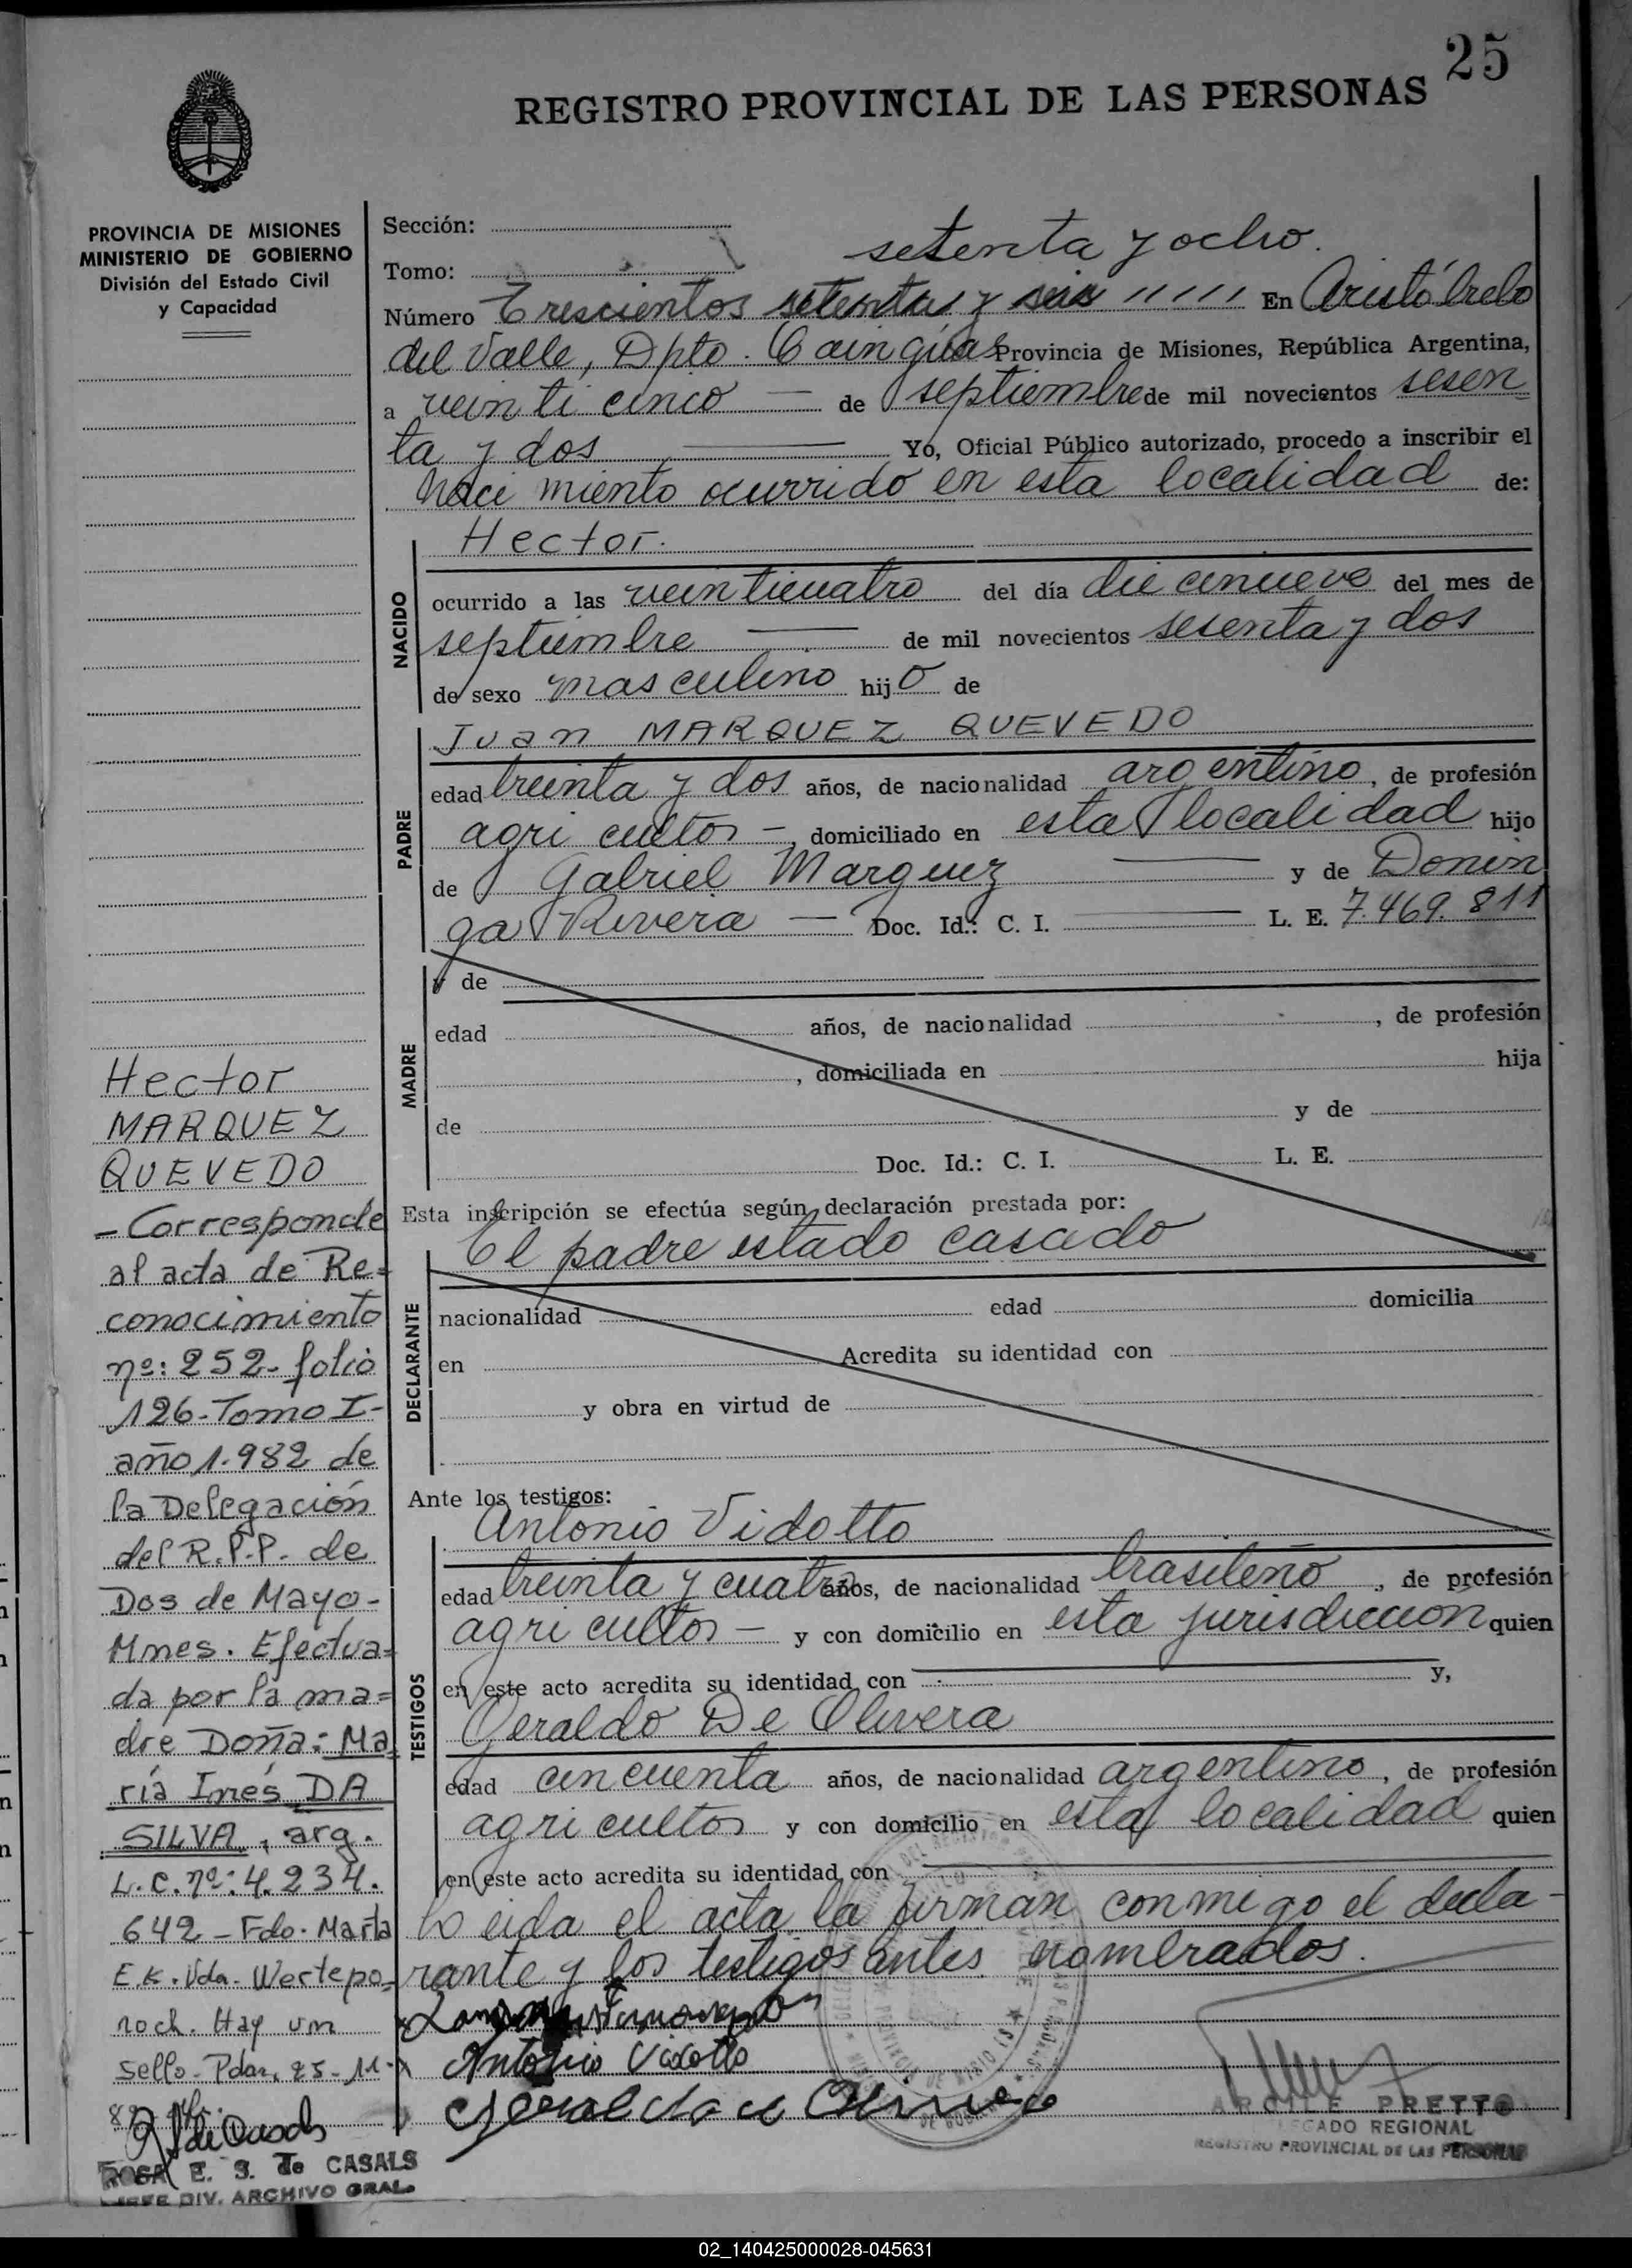 25
REGISTRO PROVINCIAL DE LAS PERSONAS
PROVINCIA DE MISIONES
MINISTERIO DE GOBIERNO
División del Estado Civil
y Capacidad
Sección:
Tomo:
setenta y ocho.
Número Trescientos setenta y seis " " " En Aristóbulo
del Valle, Dpto. Cainguás Provincia de Misiones, República Argentina,
a veinticinco — de septiembre de mil novecientos sesen
ta y dos — Yo, Oficial Público autorizado, procedo a inscribir el
nacimiento ocurrido en esta localidad de:
NACIDO
Hector.
ocurrido a las veinticuatro del día diecinueve del mes de
septiembre — de mil novecientos sesenta y dos
de sexo masculino hijo de
PADRE
Juan MARQUEZ QUEVEDO
edad treinta y dos años, de nacionalidad argentino, de profesión
agricultor —, domiciliado en esta localidad hijo
de Gabriel Marquez — y de Domin
ga Rivera — Doc. Id.: C. I. — L. E. 7.469.811
MADRE
y de
edad años, de nacionalidad , de profesión
, domiciliada en hija
de y de
Doc. Id.: C. I. L. E.
Esta inscripción se efectúa según declaración prestada por:
El padre estado casado
DECLARANTE
nacionalidad edad domicilia
en Acredita su identidad con
y obra en virtud de
Ante los testigos:
TESTIGOS
Antonio Vidotto
edad treinta y cuatro años, de nacionalidad brasileño, de profesión
agricultor — y con domicilio en esta jurisdiccion quien
en este acto acredita su identidad con — y,
Geraldo De Olivera
edad cincuenta años, de nacionalidad argentino, de profesión
agricultor y con domicilio en esta localidad quien
en este acto acredita su identidad con —
Leida el acta la firman conmigo el decla-
rante y los testigos antes nombrados.
Antonio Vidotto
ARCILE PRETTO
DELEGADO REGIONAL
REGISTRO PROVINCIAL DE LAS PERSONAS
Hector
MARQUEZ
QUEVEDO
- Corresponde
al acta de Re=
conocimiento
nº: 252- folio
126-Tomo I-
año 1.982 de
la Delegación
del R.P.P. de
Dos de Mayo-
Mnes. Efectua=
da por la ma=
dre Doña: Ma
ría Inés DA
SILVA, arg.
L.C. nº: 4.234.
642 - Fdo. Marta
E.K. Vda. Wertepo=
roch. Hay un
sello. Pdas, 25-11-
82
ROSA E. S. de CASALS
JEFE DIV. ARCHIVO GRAL.
02_140425000028-045631